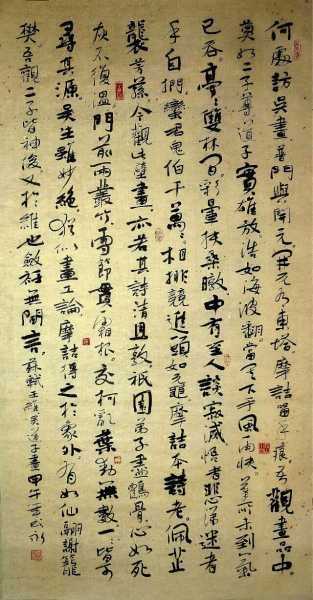 何處訪吳畫普門與開元開元有東塔摩詰留手痕吾觀畫品中
莫如二子尊道子實雄放浩如海波翻當其下手風雨快筆所未到氣
已吞亭〻雙林間彩暈扶桑暾中有至人談寂滅悟者悲涕迷者
手自捫蠻君鬼伯千萬〻相排競進頭如黿摩詰本詩老佩芷
襲芳蓀今觀此壁畫亦若其詩清且敦祇園弟子盡鶴骨心如死
灰不復溫門前兩叢竹雪節貫霜根交柯亂葉動無數一一皆可
尋其源吳生雖妙絕猶以畫工論摩詰得之於象外有如仙翮謝籠
樊吾觀二子皆神俊又於維也斂衽無間言 蘇軾王維吳道子畫甲午